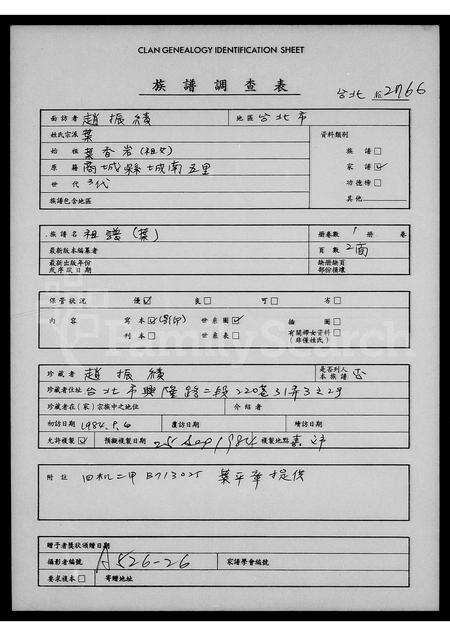 CLAN GENEALOGY IDENTIFICATION SHEET
族譜調查表
台北 2766
面訪者 趙振績 地區 台北市
姓氏宗派 葉 資料類別
始祖 葉香岩(祖父) 族譜
原籍 商城縣城南五里 家譜
世代 3代 功德榜
族譜包含地區 其他
族譜名 祖譜(葉) 冊卷數 1 冊 卷
最新版本編纂者 頁數 2面
最新出版年份 缺冊缺頁
或序跋日期 部份損壞
保管狀況 優 良 可 劣
內容 寫本(影印) 世系圖 插圖
刊本 世系表 有關婦女資料
(非僅姓氏)
珍藏者 趙振績 是否列入
本族譜 否
珍藏者住址 台北市興隆路二段220巷31弄3之2号
珍藏者在(家)宗族中之地位 介紹者
初訪日期 1984.9.6 覆訪日期 續訪日期
允許複製 預擬複製日期 25 Sep 1984 複製地點
附註 旧机二甲 B713025 葉平華提供
贈予者獎狀頒贈日期
攝影者編號 A526-26 家譜學會編號
要求複本 寄贈地址
FamilySearch